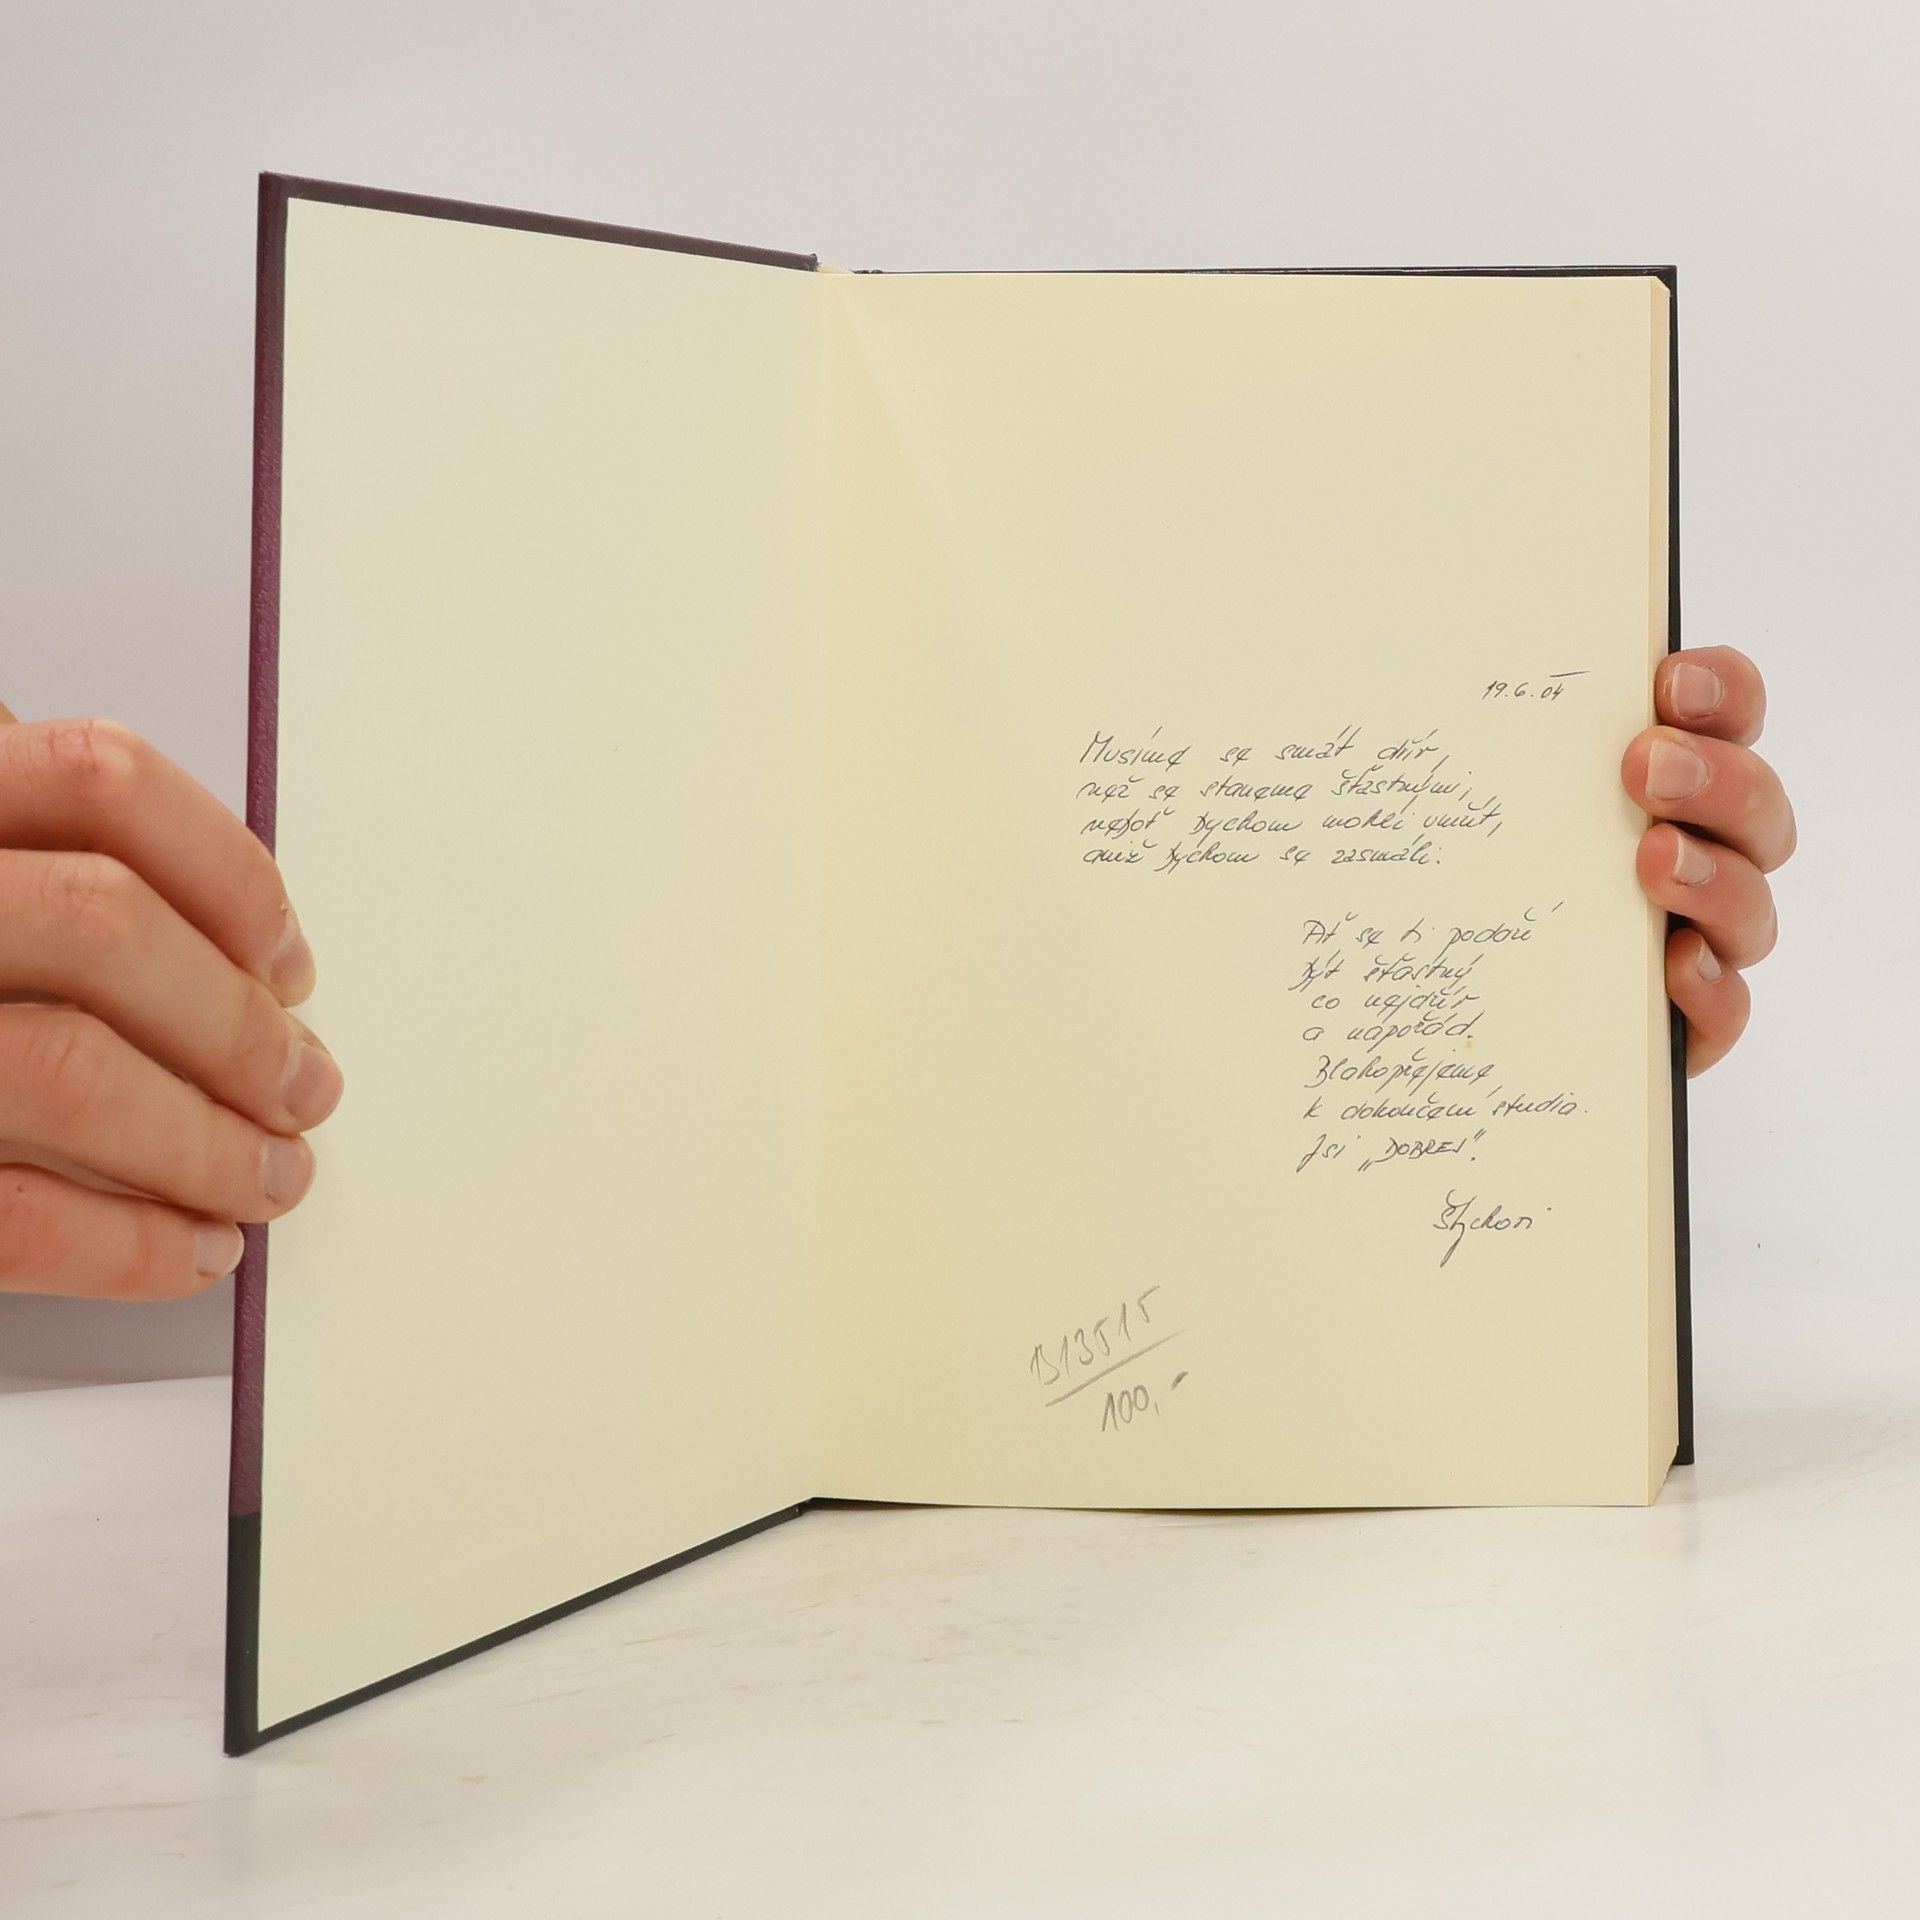 19.6.04
Musíme se smát dřív,
než se staneme šťastnými,
neboť bychom mohli umřít,
aniž bychom se zasmáli.
Ať se ti podaří
být šťastný
co nejdřív
a napořád.
Blahopřejeme
k dokončení studia.
Jsi „DOBREJ".
Štychovi
B13515
100,-